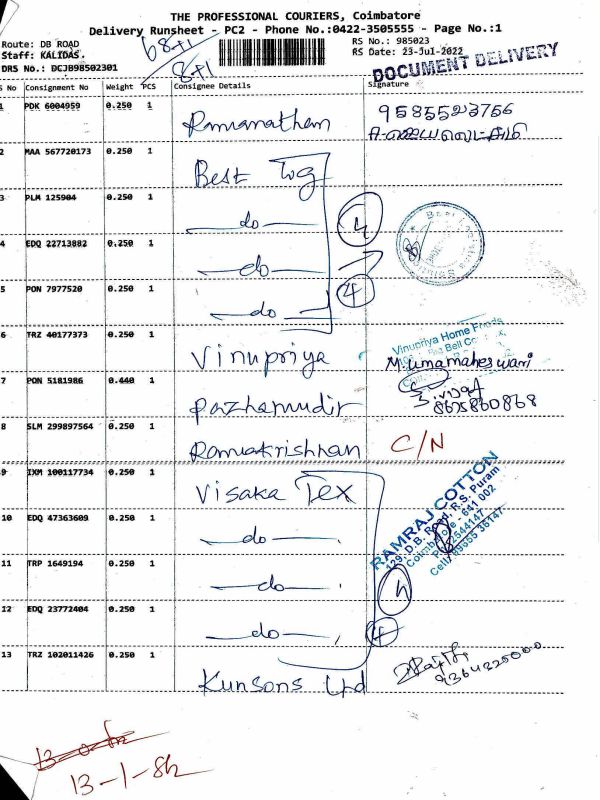 THE PROFESSIONAL COURIERS, Coimbatore
Delivery Runsheet - PC2 - Phone No.:0422-3505555 - Page No.:1
Route: DB ROAD
Staff: KALIDAS.
DRS No.: DCJB98502301
68+1
8+1
RS No.: 985023
RS Date: 23-Jul-2022
DOCUMENT DELIVERY
S No Consignment No Weight PCS Consignee Details Signature
1 PDK 6004959 0.250 1 Ramanathan 9585523756
2 MAA 567720173 0.250 1 Best Tag
3 PLM 125904 0.250 1 —do— 4
4 EDQ 22713882 0.250 1 —do—
5 PON 7977520 0.250 1 —do— 4
6 TRZ 40177373 0.250 1 Vinupriya Vinupriya Home Foods
M. Umamaheswari
7 PON 5181986 0.440 1 Pazhamudir 8675860868
8 SLM 299897564 0.250 1 Ramakrishnan C/N
9 IXM 100117734 0.250 1 Visaka Tex
RAMRAJ COTTON
129, D.B. Road, R.S. Puram
Coimbatore - 641 002
10 EDQ 47363609 0.250 1 —do—
11 TRP 1649194 0.250 1 —do— 4
12 EDQ 23772404 0.250 1 —do— 4
13 TRZ 102011426 0.250 1 Kunsons Ltd 9364225000
13-1-8h